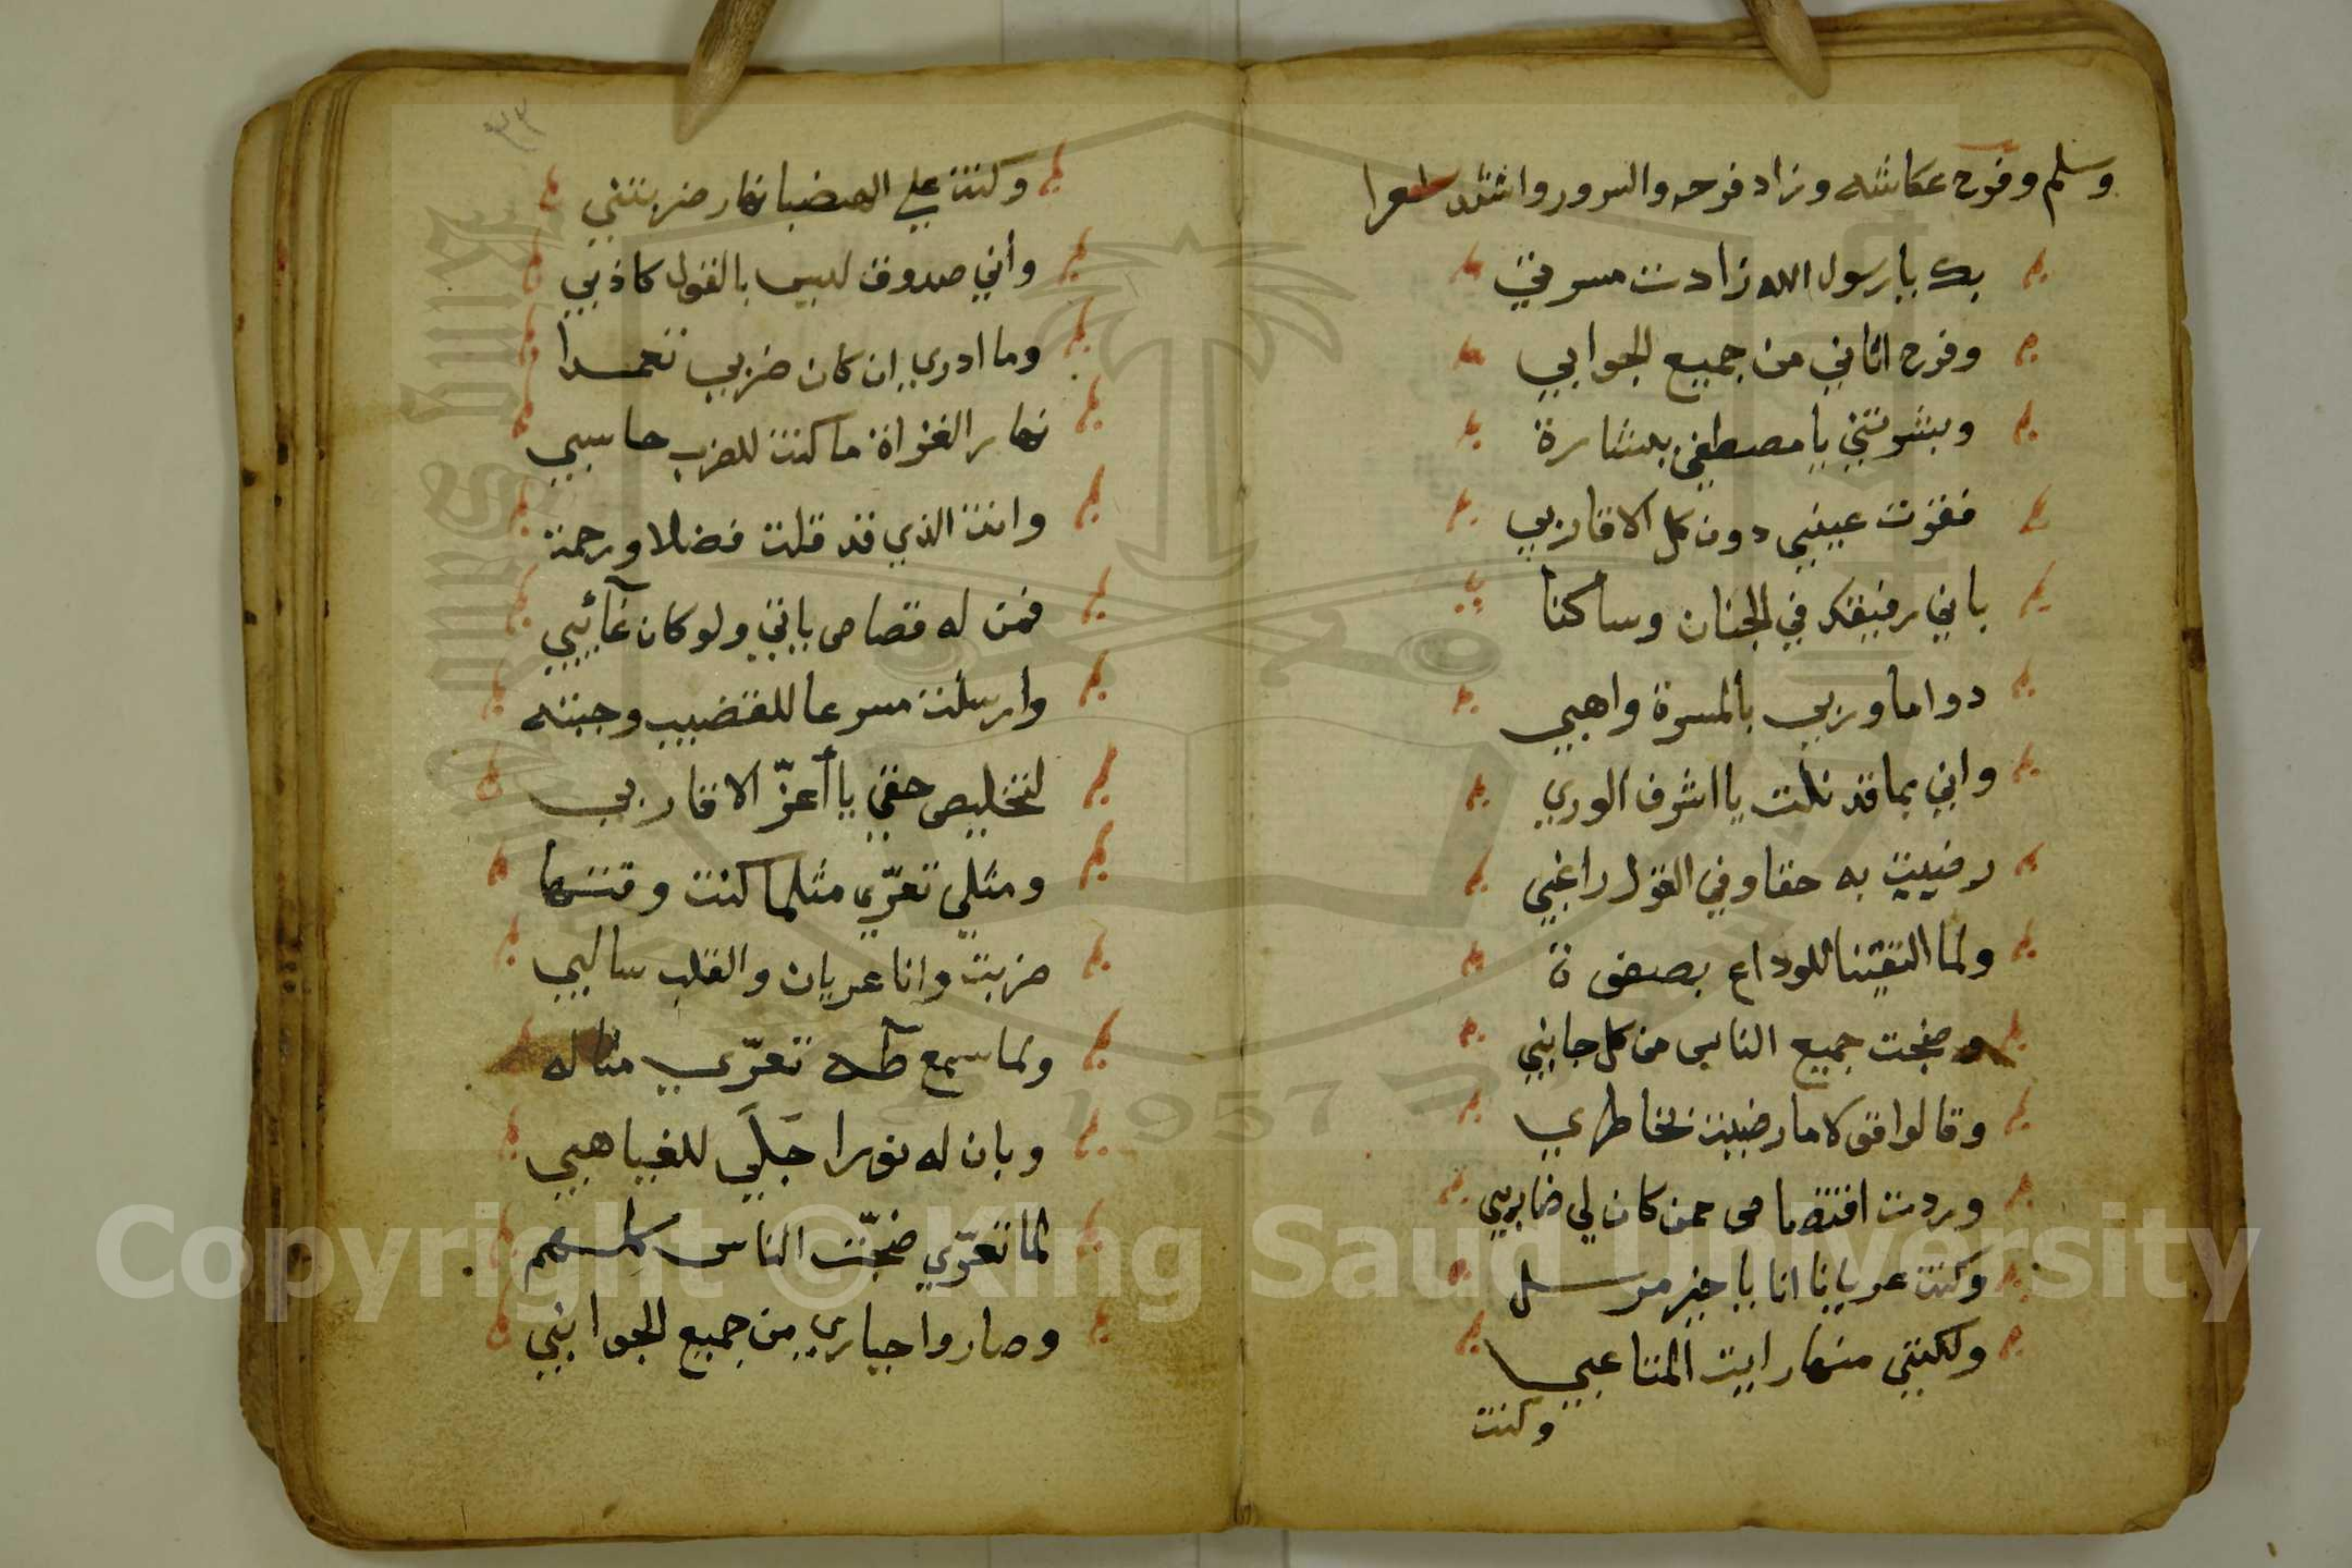 وسلم وفرح عكاشه وزاد فرحه والسرور وانشد شعرا
بك يا رسول الله زادت مسرتي
وفرح اتاني من جميع الجوانبي
وبشرتني يا مصطفي ببشارة
فقرت عيني دون كل الاقاربي
باني رفيقك في الجنان وساكنا
دواما وربي بالمسرة واهبي
واني بما قد نلت يا اشرف الوري
رضيت به حقا وفي القول راغبي
ولما التقينا للوداع بصفوة
وضجت جميع الناس من كل جانبي
وقالوا قولا ما رضيت بخاطري
وردت اقتصاص ممن كان لي ضاربي
وكنت عريانا انا يا خير مرسل
ولكنني منها رايت المتاعبي
وكنت
٣٢
وكنت علي العضبا نهار ضربتني
وأني صدوق لليس بالقول كاذبي
وما ادري ان كان ضربي تعمدا
نهار الغزاة ما كنت للضرب حاسبي
وانت الذي قد قلت فضلا ورحمة
فمن له قصاص ياتي ولو كان غآئبي
وارسلت مسرعا للقضيب وجبته
لتخليص حقي يا أعزّ الاقاربي
ومثلي تعرّي مثلما كنت وقتها
ضربت وانا عريان والقلب سالبي
ولما سمع طه تعرّي مثاله
وبان له نورا جَلَي للغياهبي
لما تعرّي ضجّت الناس كلهم
وصاروا حياري من جميع الجوانبي
Copyright © King Saud University
1957